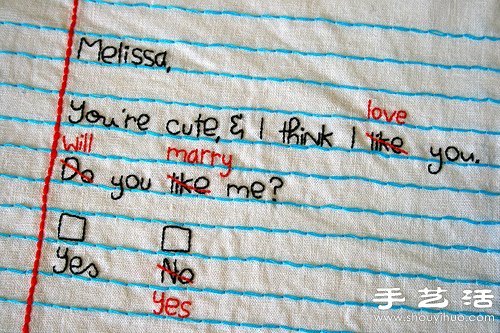 Melissa,
love
You're cute, & I think I like you.
will marry
Do you like me?
Yes No
yes
手艺活
www.shouyihuo.com